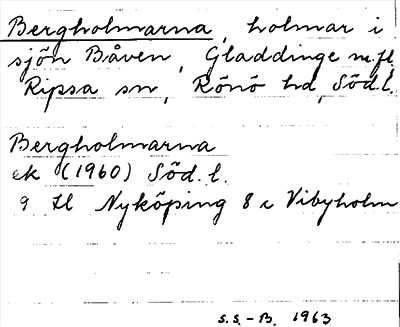 Bergholmarna, holmar i
sjön Båven, Gladdinge m.fl.
Ripsa sn, Rönö hd, Söd.l.
Bergholmarna
ek (1960) Söd. l.
9 Il Nyköping 8 c Vibyholm
S.S.-B. 1963